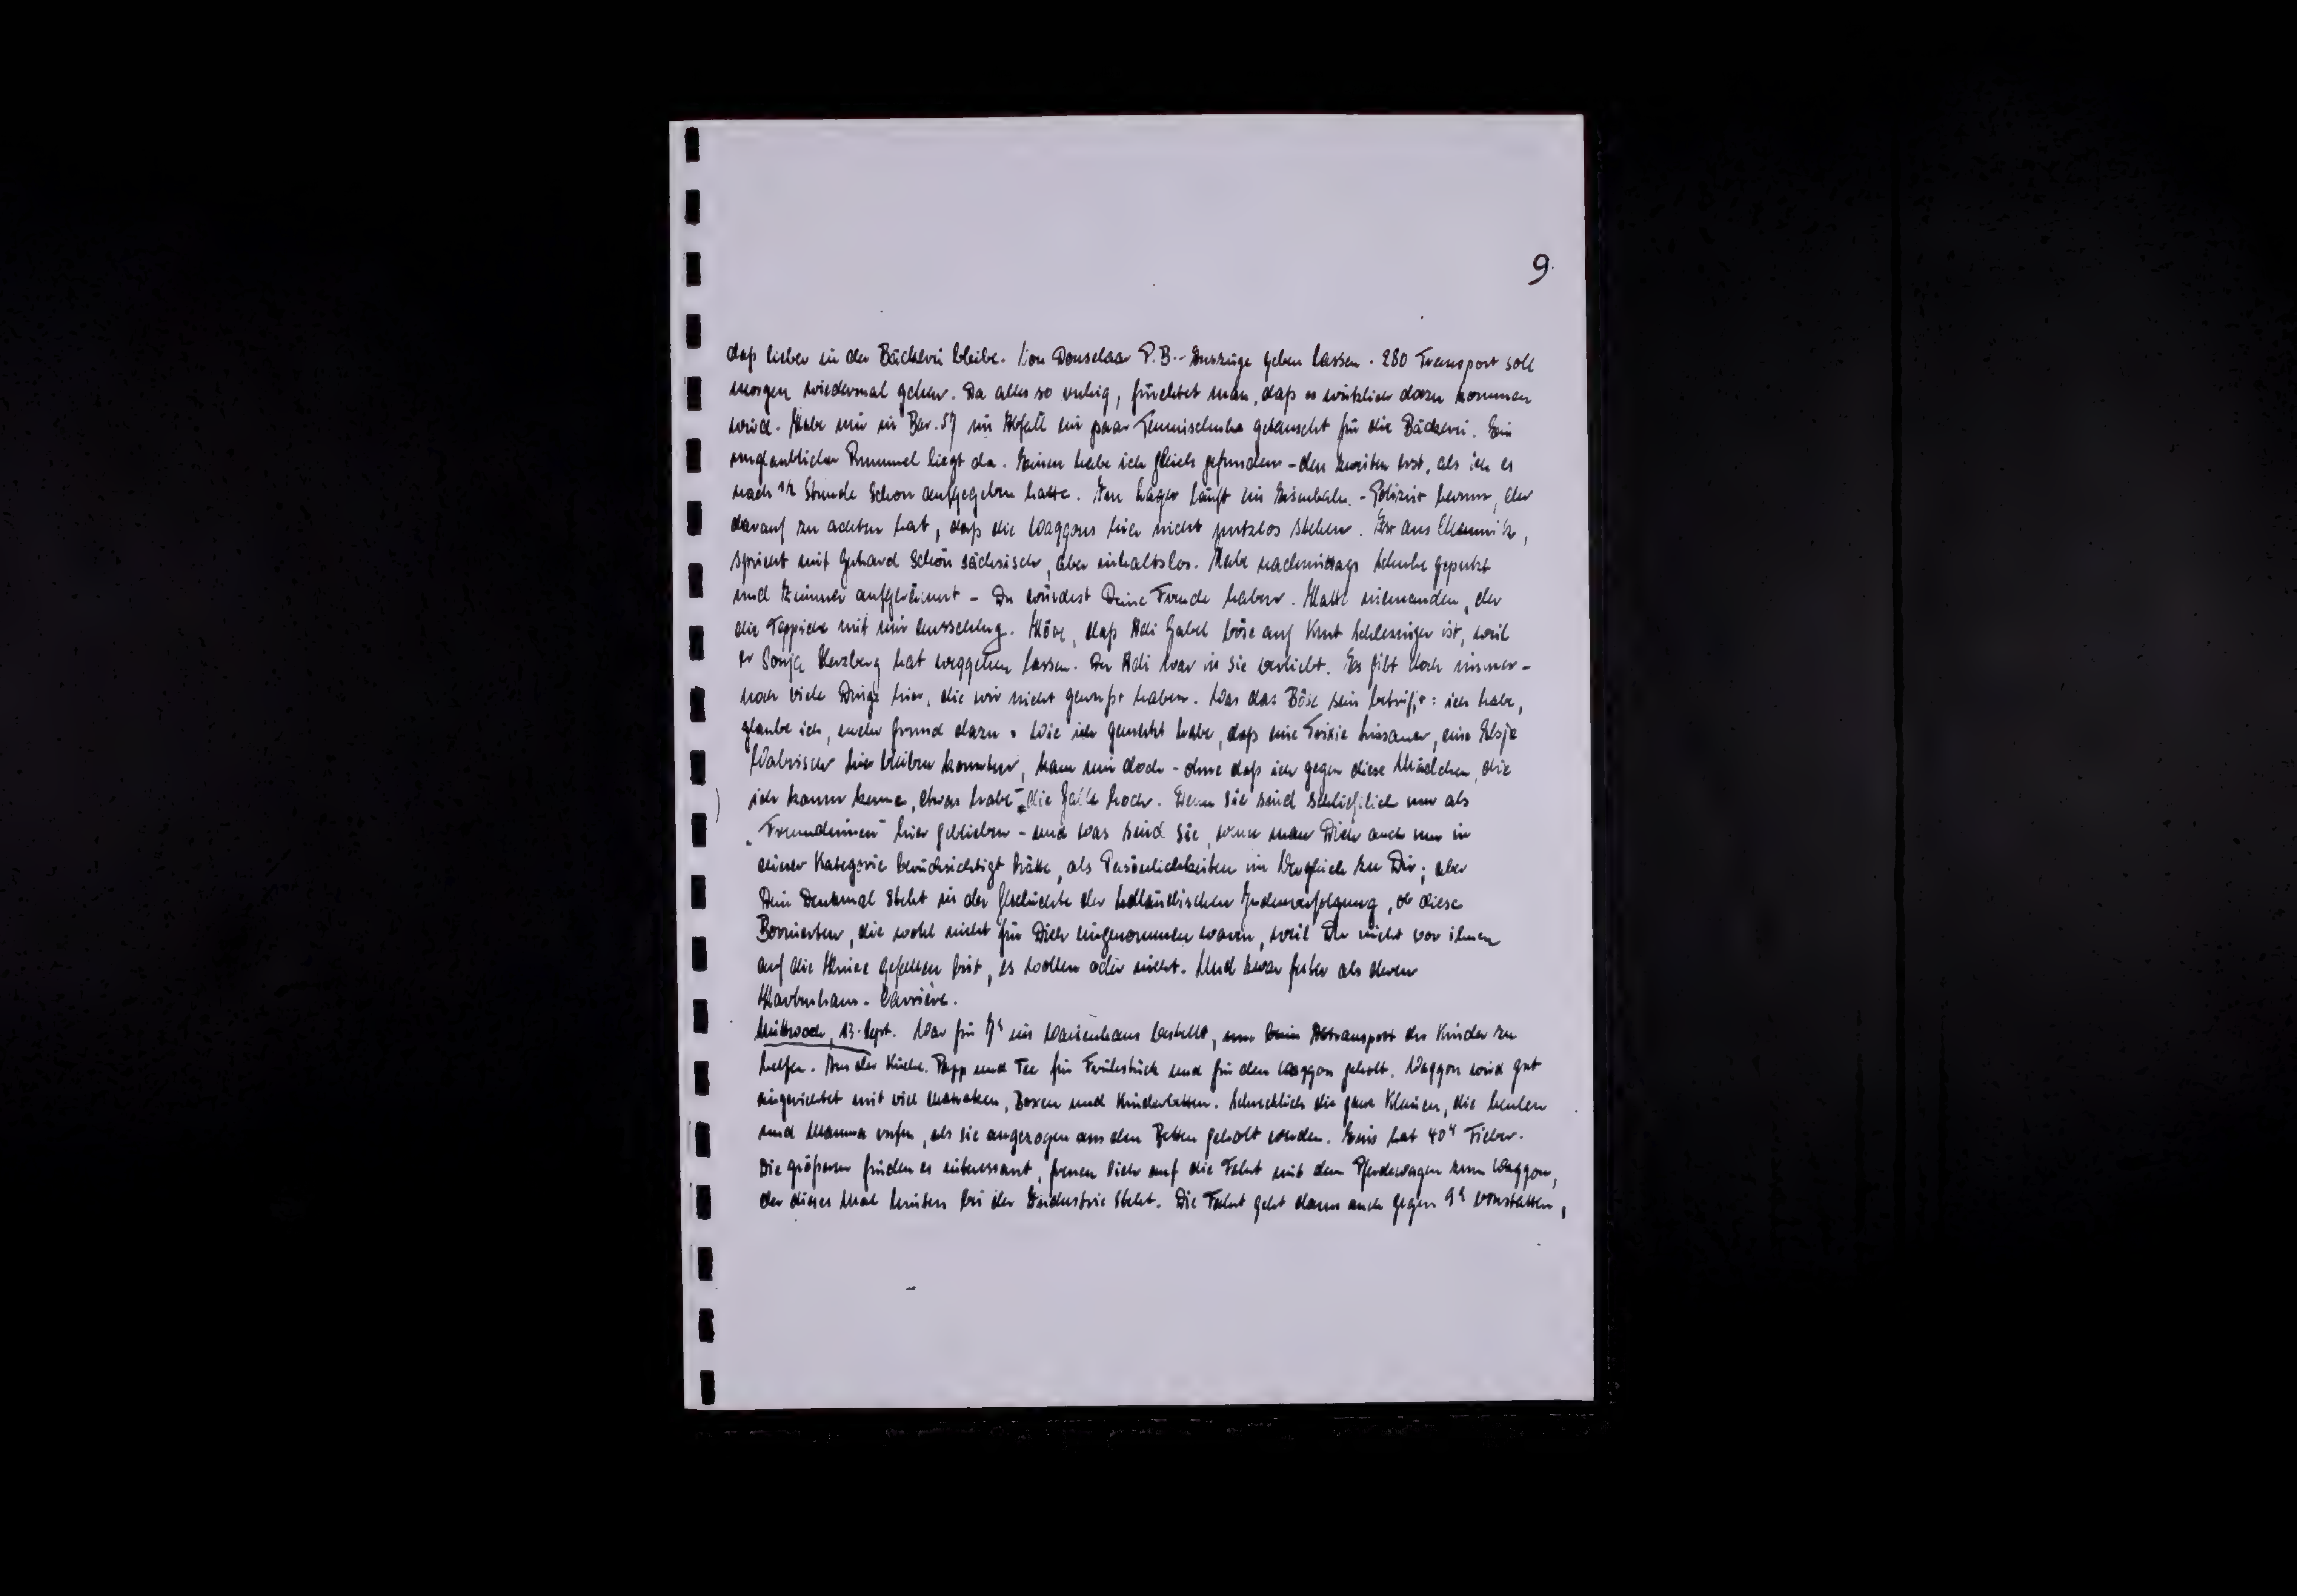 9.
daß lieber in der Bäckerei bleibe. Von Donselaar P.B.-Auszüge geben lassen. 280 Transport soll
morgen wiedermal gehen. Da alles so ruhig, fürchtet man, daß es wirklich dazu kommen
wird. Habe mir in Bar. 57 im Abfall ein paar Tennisschuhe getauscht für die Bäckerei. Ein
unglaublicher Rummel liegt da. Einen habe ich gleich gefunden - den zweiten erst, als ich es
nach 1/2 Stunde schon aufgegeben hatte. Im Lager läuft ein Eisenbahn-Polizist herum, der
darauf zu achten hat, daß die Waggons hier nicht nutzlos stehen. Ist aus Chemnitz,
spricht mit Gerhard schön sächsisch, aber inhaltslos. Habe nachmittags Schuhe geputzt
und Zimmer aufgeräumt - Du würdest Deine Freude haben. Hatte niemanden, der
die Teppiche mit mir ausschlug. Höre, daß Adi Gabel böse auf Kurt Schlesinger ist, weil
er Sonja Herzberg hat weggehen lassen. Der Adi war in sie verliebt. Es gibt doch immer-
noch viele Dinge hier, die wir nicht gewußt haben. Was das Böse sein betrifft: ich habe,
glaube ich, mehr Grund dazu. Wie ich gemerkt habe, daß eine Trixie, eine Elsje
hier bleiben konnten, kam mir doch - ohne daß ich gegen diese Mädchen, die
ich kaum kenne, etwas habe - die Galle hoch. Denn sie sind schließlich nur als
„Freundinnen" hier geblieben - und was sind sie, wenn man Dich auch nur in
dieser Kategorie berücksichtigt hätte, als Persönlichkeiten im Vergleich zu Dir; aber
Dein Denkmal steht in der Geschichte der holländischen Judenverfolgung, ob diese
Bornierten, die wohl nicht für Dich eingenommen waren, weil Du nicht vor ihnen
auf die Kniee gefallen bist, es wollen oder nicht. Und zwar fester als deren
Carrière.
Mittwoch, 13. Sept. War für 7h ins Waisenhaus bestellt, um beim Abtransport der Kinder zu
helfen. Aus der Küche Papp und Tee für Frühstück und für den Waggon geholt. Waggon wird gut
eingerichtet mit viel Matratzen, Boxen und Kinderbetten. Schrecklich die ganz Kleinen, die heulen
und Mamma rufen, als sie angezogen aus den Betten geholt werden. Eins hat 40° Fieber.
Die größeren finden es interessant, freuen sich auf die Fahrt mit dem Pferdewagen zum Waggon,
der dieses Mal hinten bei der Industrie steht. Die Fahrt geht dann auch gegen 9h vonstatten,